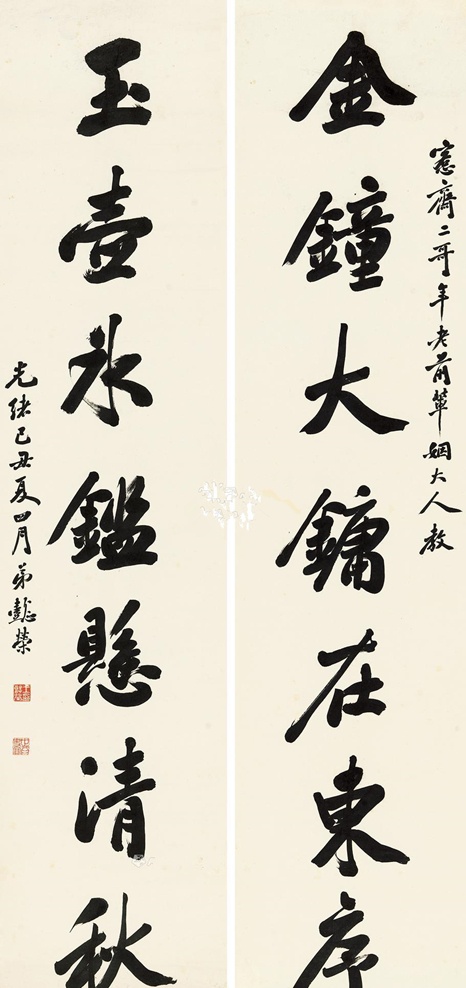 憲齋二哥年老前輩姻大人教
金鐘大鏞在東序
玉壺冰鑑懸清秋
光緒己丑夏四月弟懿榮